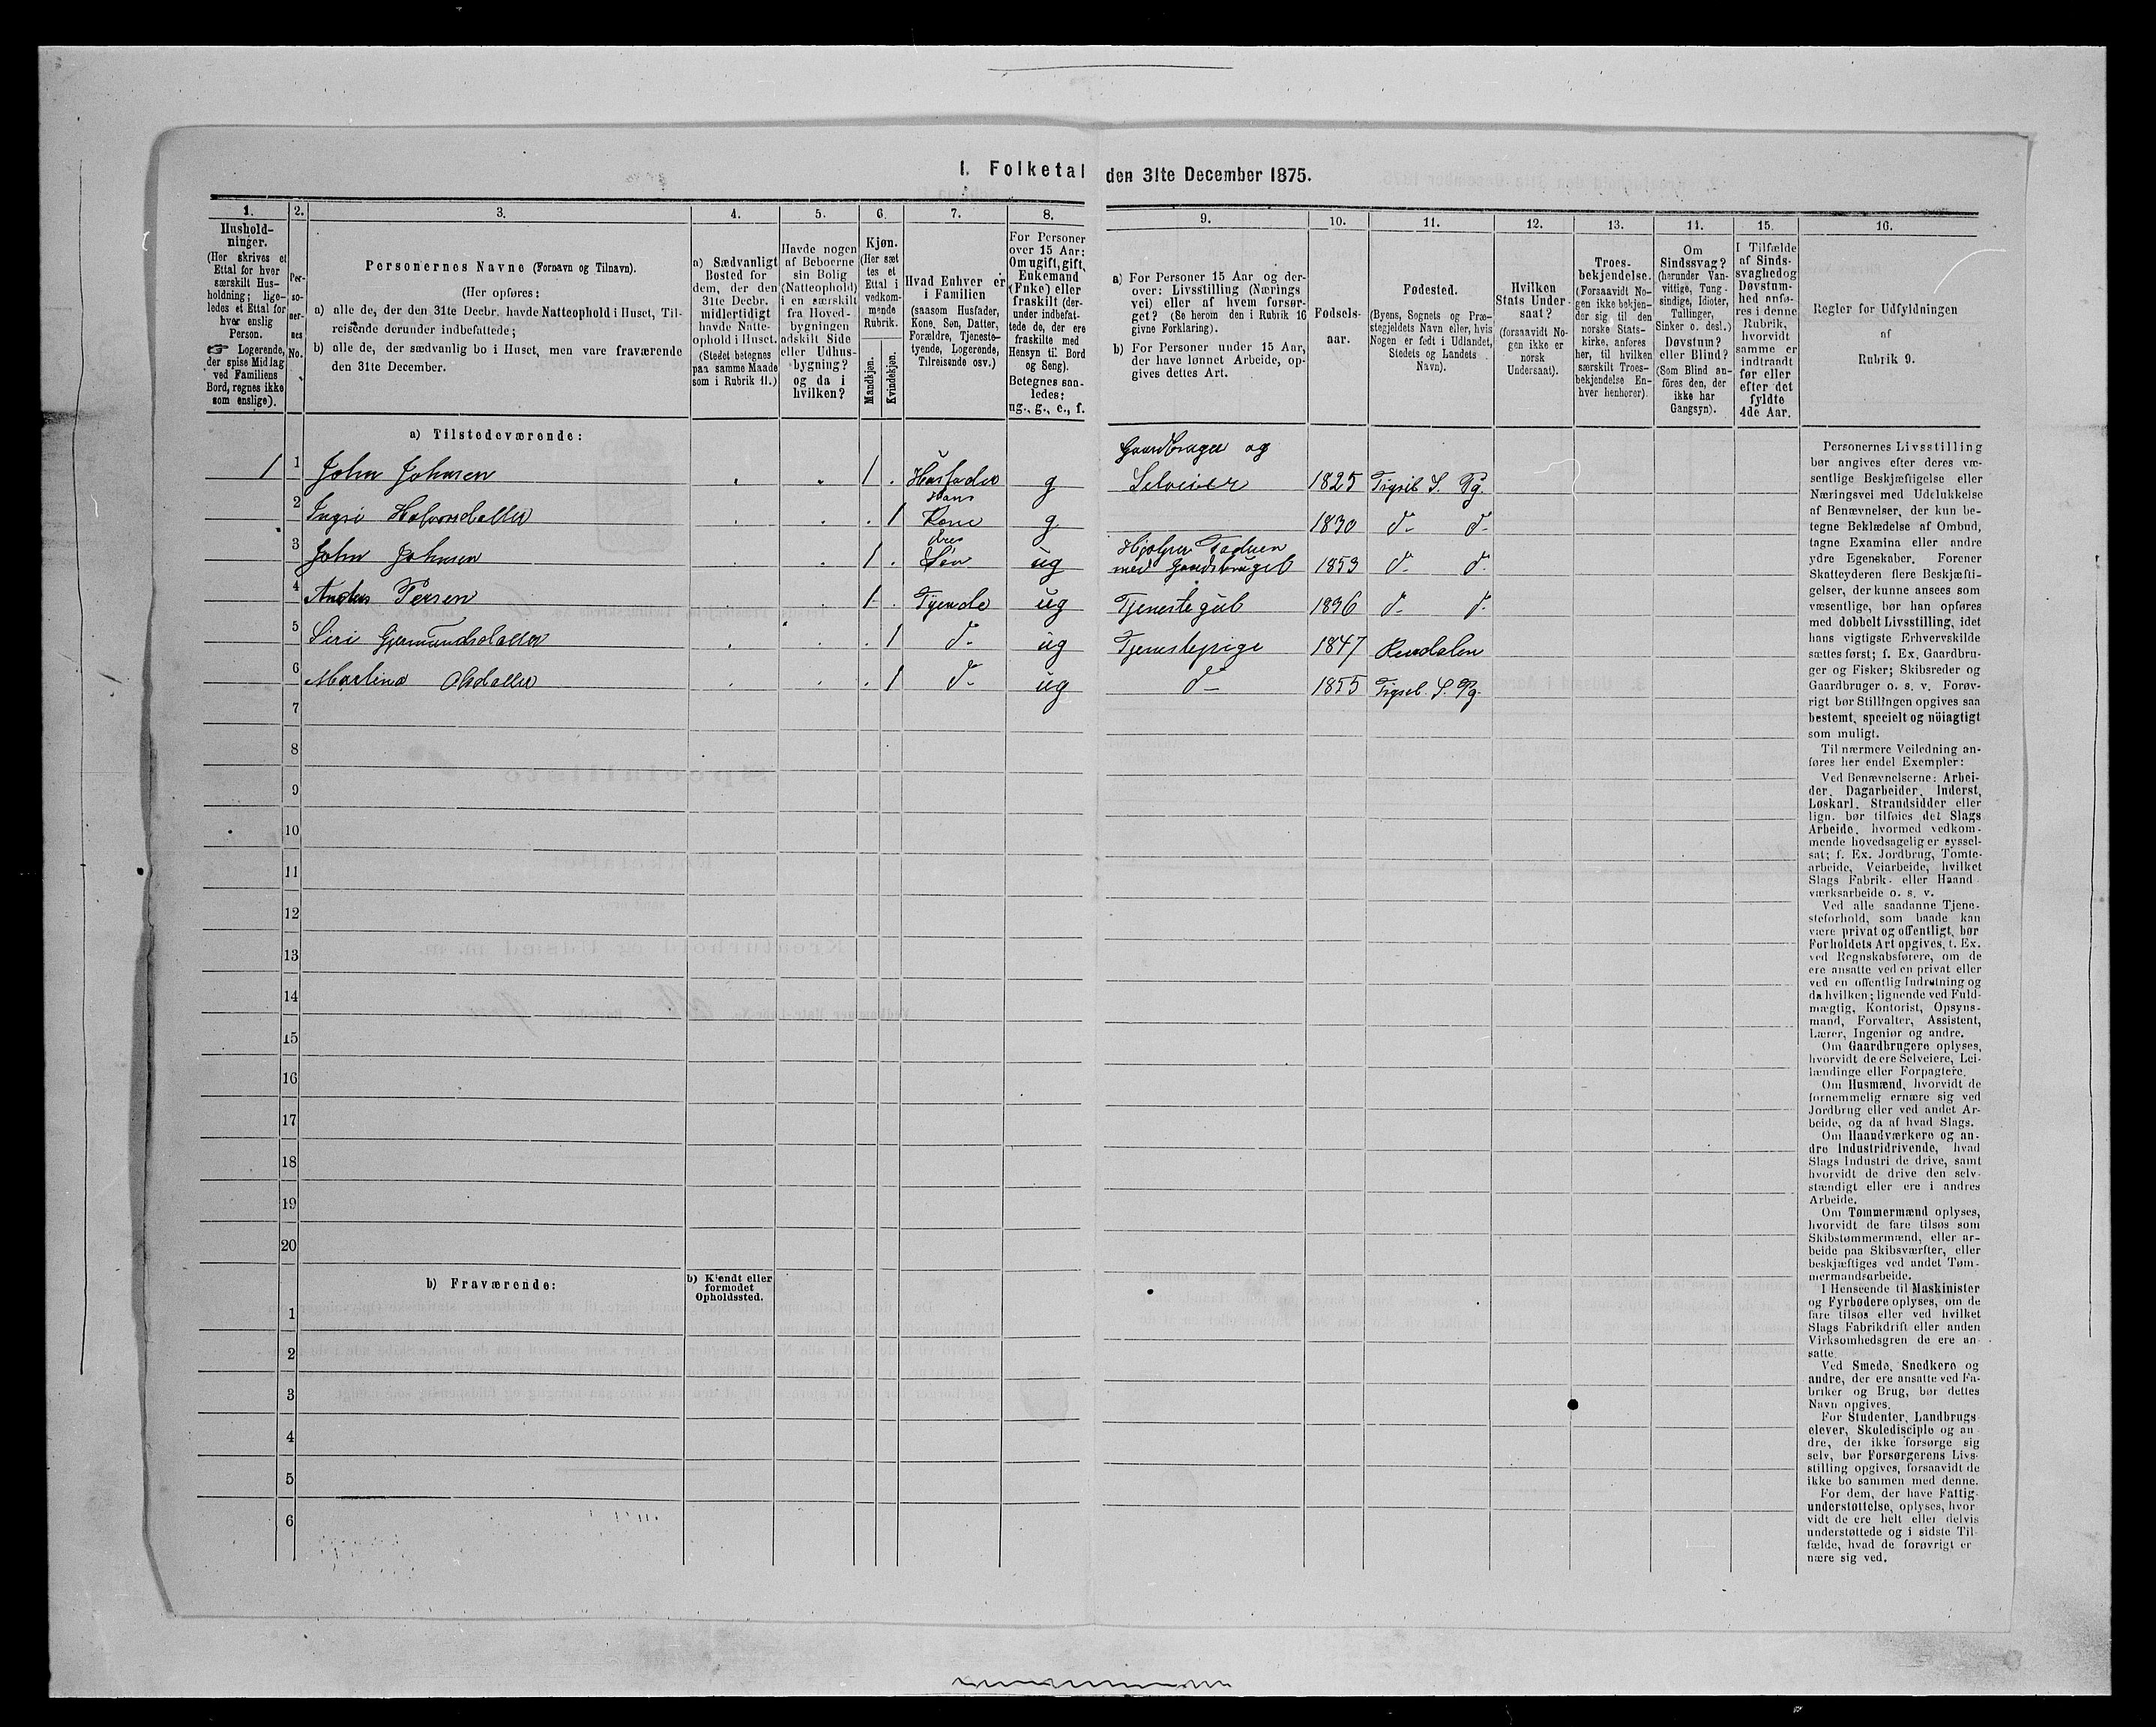 1. Folketal den 31te December 1875.
1. 2. 3. 4. 5. 6. 7. 8. 9. 10. 11. 12. 13. 14. 15. 16.
Hushold-
ninger.
(Her skrives et
Ettal for hver
særskilt Hus-
holdning; lige-
ledes et Ettal for
hver enslig
Person.
☞ Logerende,
der spise Middag
ved Familiens
Bord, regnes ikke
som enslige).
Per-
so-
ner-
nes
No.
Personernes Navne (Fornavn og Tilnavn).
(Her opføres:
a) alle de, der den 31te Decbr. havde Natteophold i Huset, Til-
reisende derunder indbefattede;
b) alle de, der sædvanlig bo i Huset, men vare fraværende
den 31te December.
a) Sædvanligt
Bosted for
dem, der den
31te Decbr.
midlertidigt
havde Natte-
ophold i Huset.
(Stedet betegnes
paa samme Maade
som i Rubrik 11.)
Havde nogen
af Beboerne
sin Bolig
(Natteophold)
i en særskilt
fra Hoved-
bygningen
adskilt Side
eller Udhus-
bygning?
og da i
hvilken?
Kjøn.
(Her sæt
tes et
Ettal i
vedkom-
mende
Rubrik.
Mandkjøn.
Kvindekjøn.
Hvad Enhver er
i Familien
(saasom Husfader,
Kone, Søn, Datter,
Forældre, Tjeneste-
tyende, Logerende,
Tilreisende osv.)
For Personer
over 15 Aar:
Om ugift, gift,
Enkemand
(Enke) eller
fraskilt (der-
under indbefat-
tede de, der ere
fraskilte med
Hensyn til Bord
og Seng).
Betegnes saa-
ledes:
ug., g., e., f.
a) For Personer 15 Aar og der-
over: Livsstilling (Nærings
vei) eller af hvem forsør-
get? (Se herom den i Rubrik 16
givne Forklaring).
b) For Personer under 15 Aar,
der have lønnet Arbeide, op-
gives dettes Art.
Fødsels-
aar.
Fødested.
(Byens, Sognets og Præ-
stegjeldets Navn eller, hvis
Nogen er født i Udlandet,
Stedets og Landets
Navn).
Hvilken
Stats Under-
saat?
(forsaavidt No-
gen ikke er
norsk
Undersaat).
Troes-
bekjendelse.
(Forsaavidt No-
gen ikke bekjen-
der sig til den
norske Stats-
kirke, anføres
her, til hvilken
særskilt Troes-
bekjendelse En-
hver henhører).
Om
Sindssvag?
(herunder Van-
vittige, Tung-
sindige, Idioter,
Tullinger,
Sinker o. desl.)
Døvstum?
eller Blind?
(Som Blind an-
føres den, der
ikke har
Gangsyn).
I Tilfælde
af Sinds-
svaghed og
Døvstum-
hed anfø-
res i denne
Rubrik,
hvorvidt
samme er
indtraadt
før eller
efter det
fyldte
4de Aar.
Regler for Udfyldningen
af
Rubrik 9.
a) Tilstedeværende:
Gaardbruger og
1 1 John Johnsen 1 Husfader g Selveier 1825 Trysil S. Pg.
Hans
2 Ingri Halvorsdatter 1 Kone g 1830 d- d-
dres Hjelper Faderen
3 John Johnsen 1 Søn ug med Gaardsbruget 1853 d- d-
4 Anders Persen 1 Tyende ug Tjenestegut 1836 d- d-
5 Siri Gjermundsdatter 1 d- ug Tjenestepige 1847 Rendalen
6 Martina Olsdatter 1 d- ug d- 1855 Trysil S. Pg.
7
8
9
10
11
12
13
14
15
16
17
18
19
20
b) Fraværende:
b) Kjendt eller
formodet
Opholdssted.
1
2
3
4
5
6
Personernes Livsstilling
bør angives efter deres væ-
sentlige Beskjæftigelse eller
Næringsvei med Udelukkelse
af Benævnelser, der kun be-
tegne Beklædelse af Ombud,
tagne Examina eller andre
ydre Egenskaber. Forener
Skatteyderen flere Beskjæfti-
gelser, der kunne ansees som
væsentlige, bør han opføres
med dobbelt Livsstilling, idet
hans vigtigste Erhvervskilde
sættes først; f. Ex. Gaardbru-
ger og Fisker; Skibsreder og
Gaardbruger o. s. v. Forøv-
rigt bør Stillingen opgives saa
bestemt, specielt og nöiagtigt
som muligt.
Til nærmere Veiledning an-
føres her endel Exempler:
Ved Benævnelserne: Arbei-
der, Dagarbeider, Inderst,
Løskarl, Strandsidder eller
lign. bør tilføies det Slags
Arbeide, hvormed vedkom-
mende hovedsagelig er syssel-
sat; f. Ex. Jordbrug, Tomte-
arbeide, Veiarbeide, hvilket
Slags Fabrik- eller Haand-
værksarbeide o. s. v.
Ved alle saadanne Tjene-
steforhold, som baade kan
være privat og offentligt, bør
Forholdets Art opgives, t. Ex.
ved Regnskabsførere, om de
ere ansatte ved en privat eller
ved en offentlig Indretning og
da hvilken; lignende ved Fuld-
mægtig, Kontorist, Opsyns-
mand, Forvalter, Assistent,
Lærer, Ingeniør og andre.
Om Gaardbrugere oplyses,
hvorvidt de ere Selveiere, Lei-
lændinge eller Forpagtere.
Om Husmænd, hvorvidt de
fornemmelig ernære sig ved
Jordbrug eller ved andet Ar-
beide, og da af hvad Slags.
Om Haandværkere og an-
dre Industridrivende, hvad
Slags Industri de drive, samt
hvorvidt de drive den selv-
stændigt eller ere i andres
Arbeide.
Om Tømmermænd oplyses,
hvorvidt de fare tilsøs som
Skibstømmermænd, eller ar-
beide paa Skibsværfter, eller
beskjæftiges ved andet Tøm-
mermandsarbeide.
I Henseende til Maskinister
og Fyrbødere oplyses, om de
fare tilsøs eller ved hvilket
Slags Fabrikdrift eller anden
Virksomhedsgren de ere an-
satte.
Ved Smede, Snedkere og
andre, der ere ansatte ved Fa-
briker og Brug, bør dettes
Navn opgives.
For Studenter, Landbrugs-
elever, Skoledisciple og an-
dre, der ikke forsørge sig
selv, bør Forsørgerens Livs-
stilling opgives, forsaavidt de
ikke bo sammen med denne.
For dem, der have Fattig-
understøttelse, oplyses, hvor-
vidt de ere helt eller delvis
understøttede og i sidste Til-
fælde, hvad de forøvrigt er-
nære sig ved.